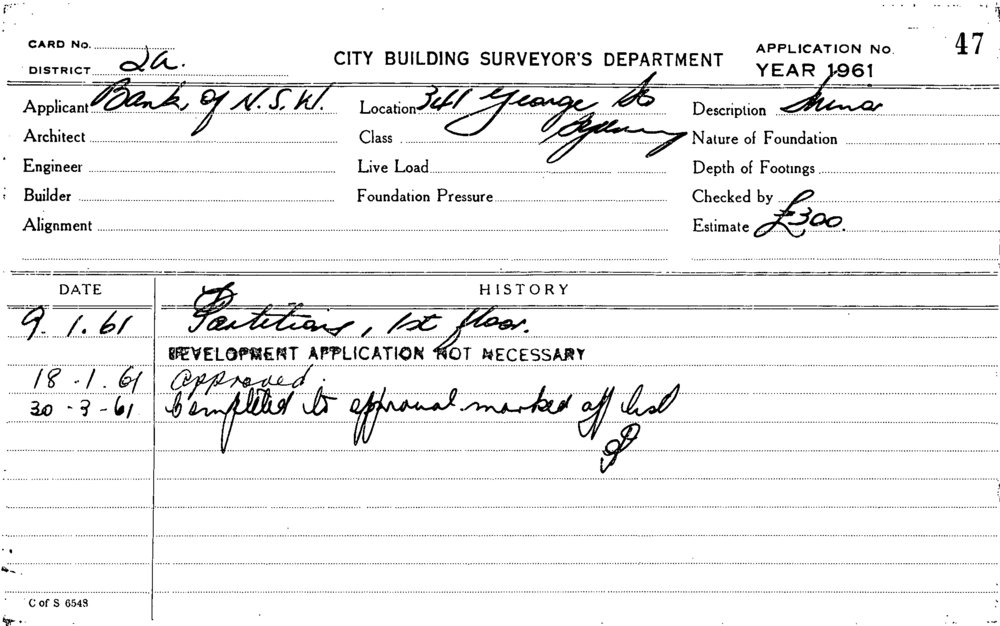 CARD No.
DISTRICT 2a.
CITY BUILDING SURVEYOR'S DEPARTMENT
APPLICATION No. 47
YEAR 1961
Applicant Bank of N.S.W. Location 341 George St Description Minor
Sydney
Architect Class Nature of Foundation
Engineer Live Load Depth of Footings
Builder Foundation Pressure Checked by
Alignment Estimate £300.
DATE HISTORY
9.1.61 Partitions, 1st floor.
DEVELOPMENT APPLICATION NOT NECESSARY
18.1.61 Approved.
30-3-61 Completed to approval marked off list
C of S 6548